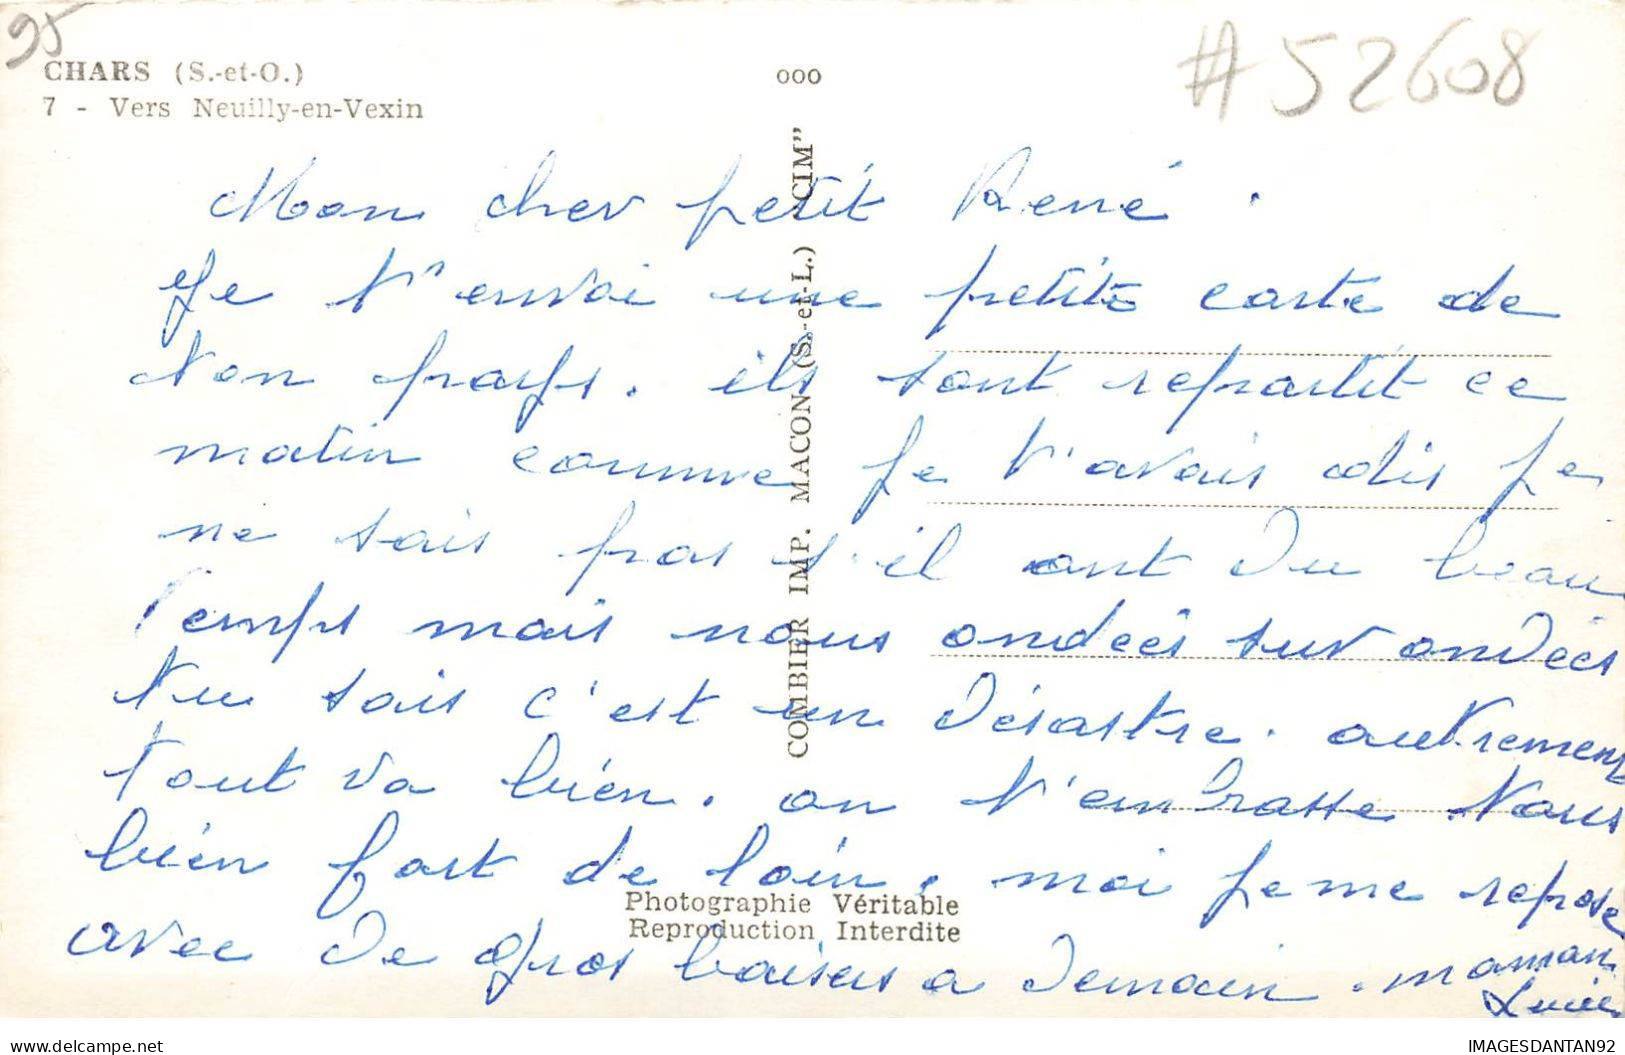 95
CHARS (S.-et-O.)
7 - Vers Neuilly-en-Vexin
000
#52608
Mon cher petit René.
Je t'envoi une petite carte de
ton pays. ils sont repartit ce
matin comme je t'avais dis je
ne sais pas s'il ont du beau
temps mais nous ondées sur ondées
tu sais c'est un désastre. autrement
tout va bien. on t'embrasse tous
bien fort de loin. moi je me repose
avec de gros baisers a demain. maman
COMBIER IMP. MACON (S.-et-L.) "CIM"
Photographie Véritable
Reproduction Interdite
delcampe.net
IMAGESDANTAN92